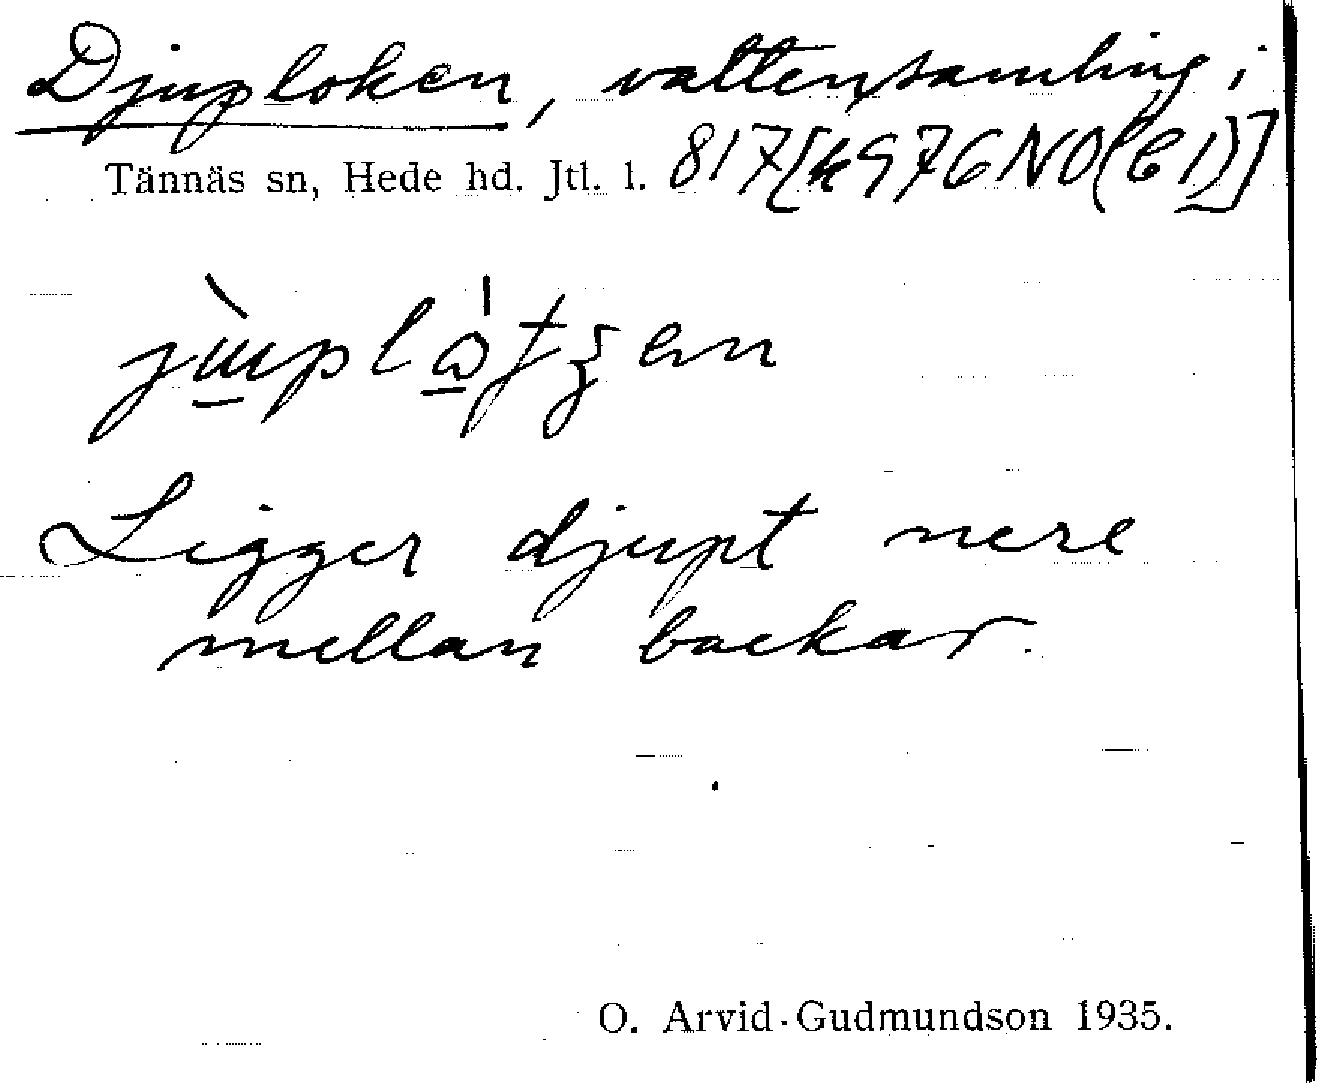 Djuploken, vattensamling, i
Tännäs sn, Hede hd. Jtl. l. 817[k976NO(C1)]
Ligger djupt nere
mellan backar.
O. Arvid-Gudmundson 1935.